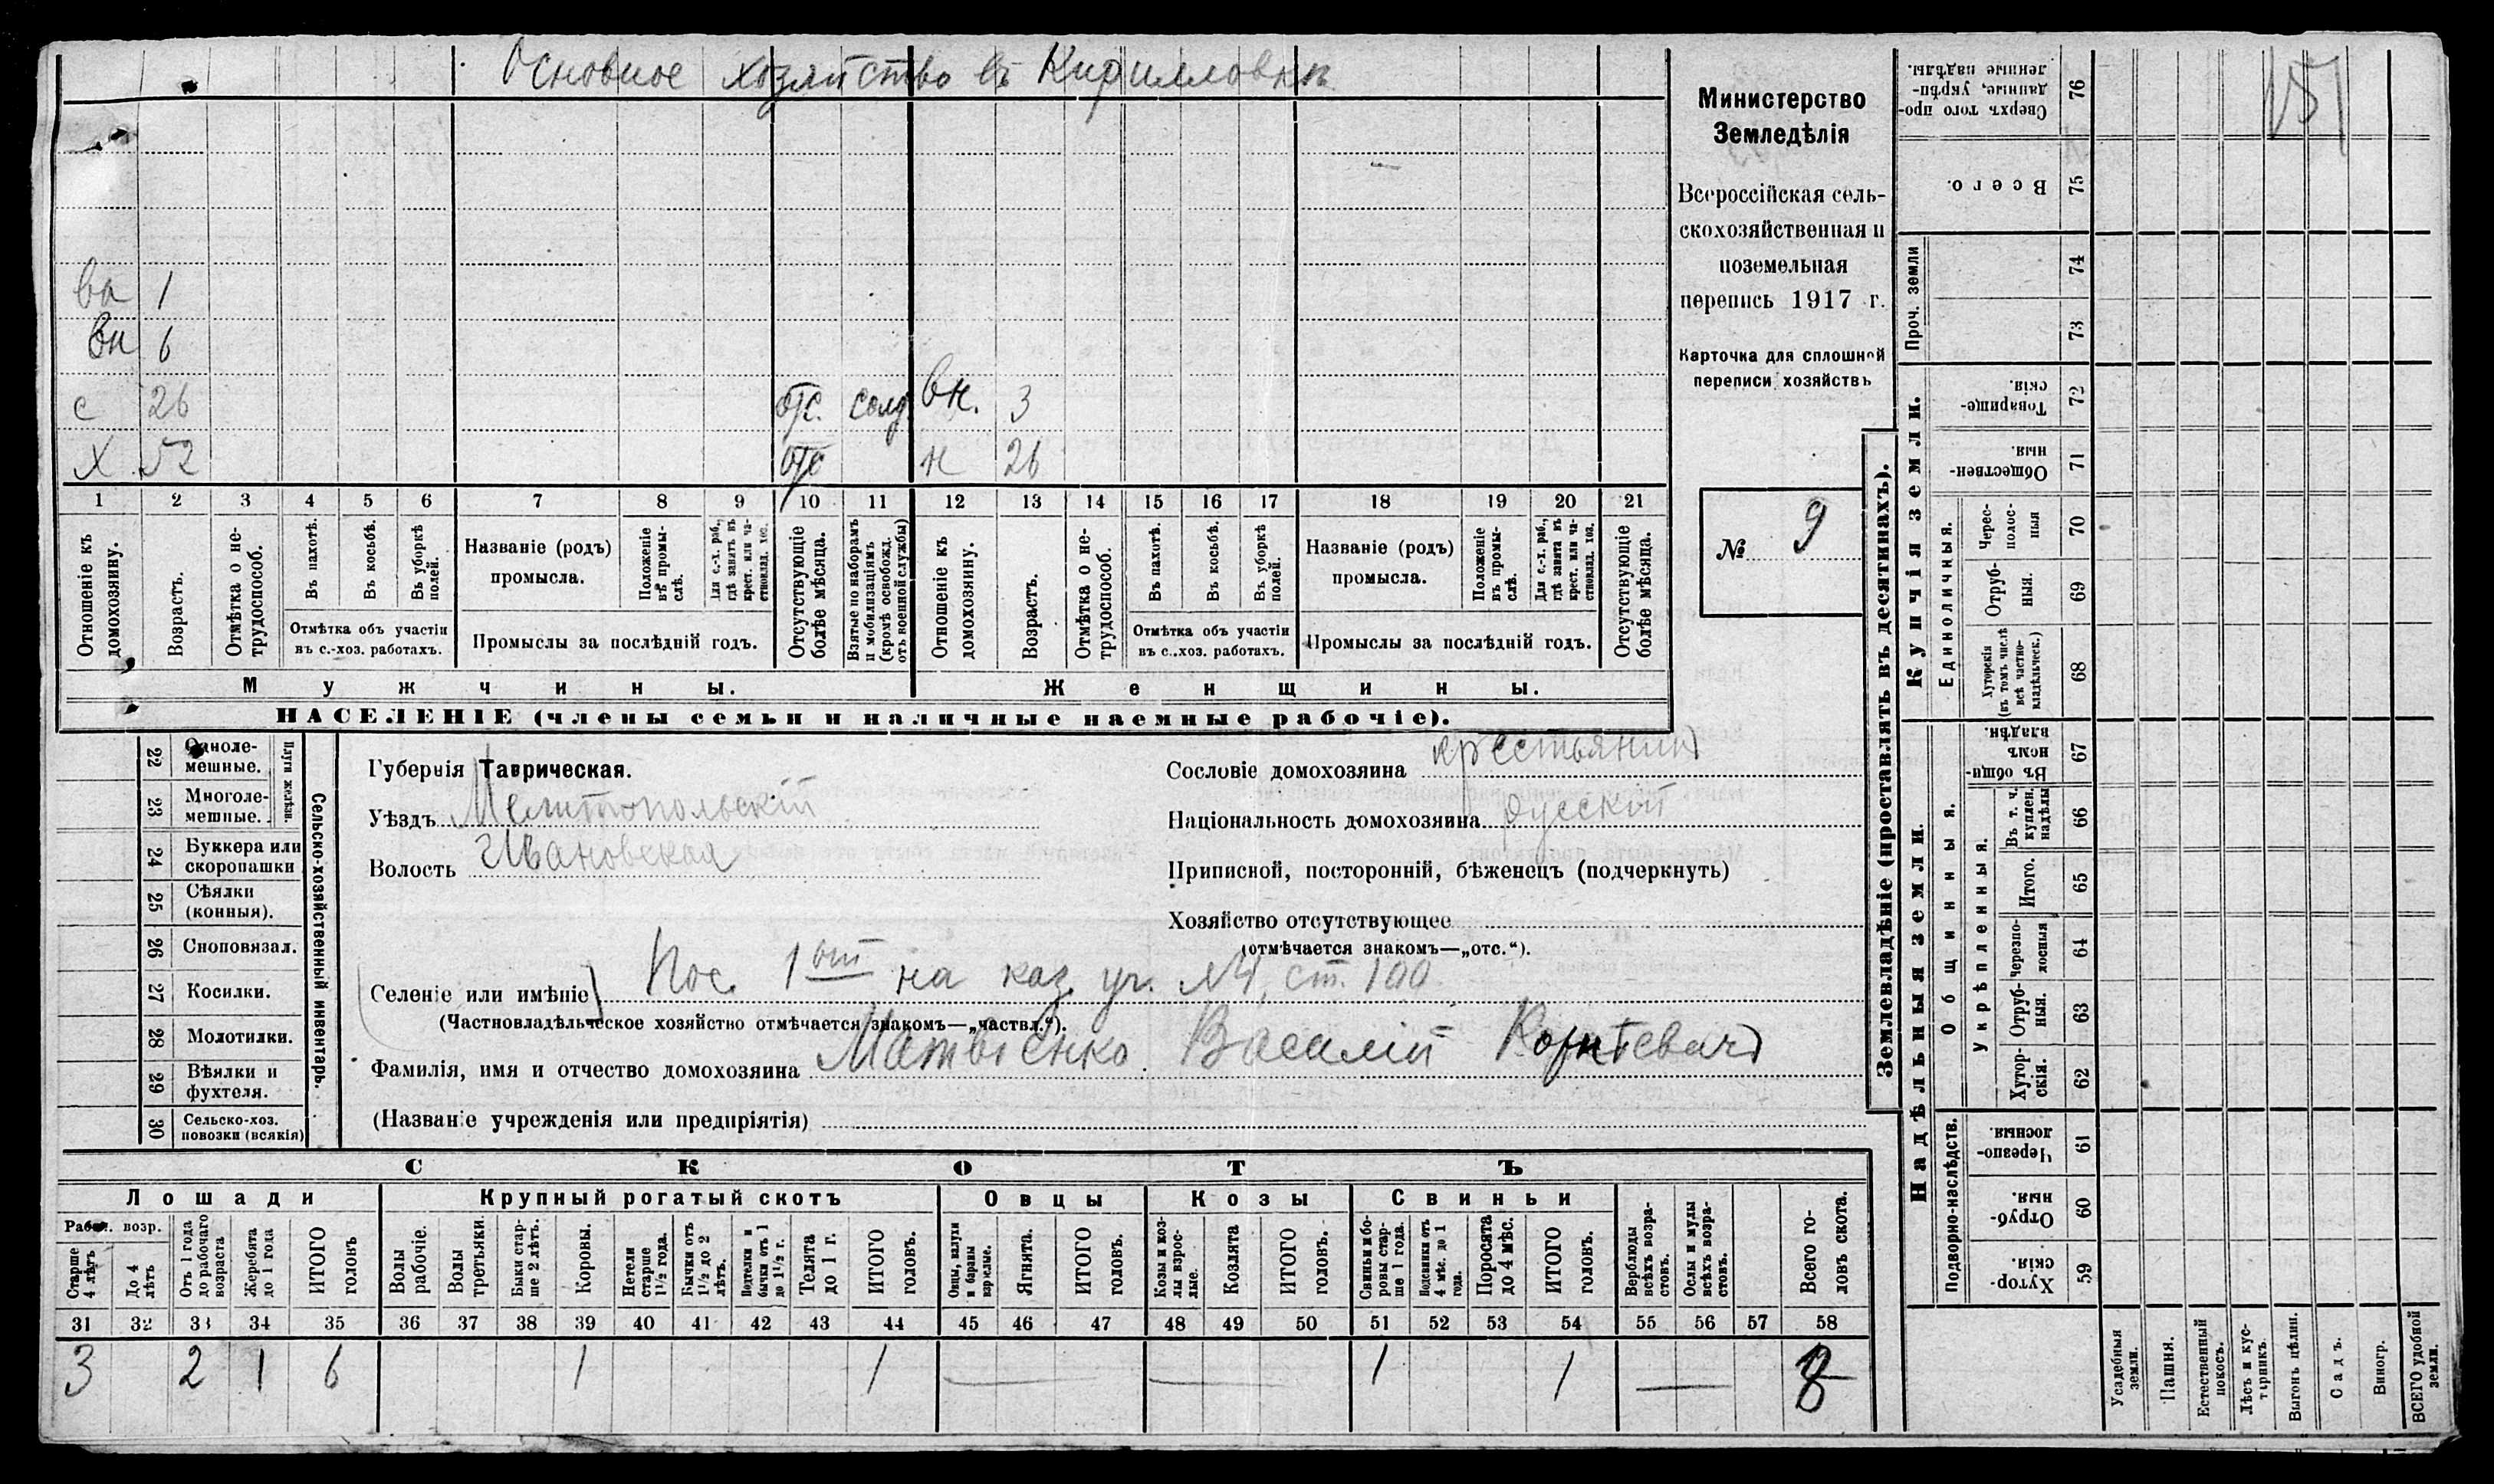 Основное хозяйство въ Кирилловкѣ
Министерство
Земледѣлія
Всероссійская сель-
скохозяйственная и
поземельная
перепись 1917 г.
Карточка для сплошной
переписи хозяйствъ
№ 9
вн 1
вн 6
с 26 отс. солд вн. 3
х 52 отс н 26
1 2 3 4 5 6 7 8 9 10 11 12 13 14 15 16 17 18 19 20 21
Отношеніе къ домохозяину.
Возрастъ.
Отмѣтка о не-трудоспособ.
Въ пахотѣ.
Въ косьбѣ.
Въ уборкѣ полей.
Отмѣтка объ участіи
въ с.-хоз. работахъ.
Названіе (родъ)
промысла.
Положеніе въ промы-слѣ.
Для с.-х. раб., гдѣ занятъ въ крест. или ча-стновлад. хоз.
Промыслы за послѣдній годъ.
Отсутствующіе болѣе мѣсяца.
Взятые по наборамъ и мобилизаціямъ (кромѣ освобожд. отъ военной службы)
Отношеніе къ домохозяину.
Возрастъ.
Отмѣтка о не-трудоспособ.
Въ пахотѣ.
Въ косьбѣ.
Въ уборкѣ полей.
Отмѣтка объ участіи
въ с.-хоз. работахъ.
Названіе (родъ)
промысла.
Положеніе въ промы-слѣ.
Для с.-х. раб., гдѣ занятъ въ крест. или ча-стновлад. хоз.
Промыслы за послѣдній годъ.
Отсутствующіе болѣе мѣсяца.
Мужчины.
Женщины.
НАСЕЛЕНІЕ (члены семьи и наличные наемные рабочіе).
22 Одноле-мешные.
23 Многоле-мешные.
Плуги желѣзн.
24 Буккера или скоропашки
25 Сѣялки (конныя).
26 Сноповязал.
27 Косилки.
28 Молотилки.
29 Вѣялки и фухтеля.
30 Сельско-хоз. повозки (всякія)
Сельско-хозяйственный инвентарь.
Губернія Таврическая.
Уѣздъ Мелитопольскій
Волость Ивановская
Сословіе домохозяина крестьянинъ
Національность домохозяина русскій
Приписной, посторонній, бѣженецъ (подчеркнуть)
Хозяйство отсутствующее
(отмѣчается знакомъ—„отс.“).
Селеніе или имѣніе Пос. 1ый на каз. уч. №1, ст. 100
(Частновладѣльческое хозяйство отмѣчается знакомъ—„частвл.“).
Фамилія, имя и отчество домохозяина Матвіенко Василій Корнѣевичъ
(Названіе учрежденія или предпріятія)
СКОТЪ
Лошади
Крупный рогатый скотъ
Овцы
Козы
Свиньи
Рабоч. возр.
Старше 4 лѣтъ
До 4 лѣтъ
Отъ 1 года до рабочаго возраста
Жеребята до 1 года
ИТОГО головъ
Волы рабочіе.
Волы третьяки.
Быки стар-ше 2 лѣтъ.
Коровы.
Нетели старше 1½ года.
Бычки отъ 1½ до 2 лѣтъ.
Подтелки и бычки отъ 1 до 1½ г.
Телята до 1 г.
ИТОГО головъ.
Овцы, валухи и бараны взрослые.
Ягнята.
ИТОГО головъ.
Козы и коз-лы взрос-лые.
Козлята
ИТОГО головъ.
Свиньи и бо-ровы стар-ше 1 года.
Подсвинки отъ 4 мѣс. до 1 года.
Поросята до 4 мѣс.
ИТОГО головъ.
Верблюды всѣхъ возра-стовъ.
Ослы и мулы всѣхъ возра-стовъ.
Всего го-ловъ скота.
31 32 33 34 35 36 37 38 39 40 41 42 43 44 45 46 47 48 49 50 51 52 53 54 55 56 57 58
3 2 1 6 1 1 — — 1 1 — 8
Землевладѣніе (проставлять въ десятинахъ).
Надѣльныя земли.
Купчія земли.
Проч. земли
Подворно-наслѣдств.
Общинныя.
Укрѣпленныя.
Единоличныя.
Сверхъ того про-данные, укрѣп-ленные надѣлы. 76
Всего. 75
74
73
Товарище-скія. 72
Обществен-ныя. 71
Черес-полос-ныя 70
Отруб-ныя. 69
Хуторскія (въ томъ числѣ всѣ частно-владѣльческ.) 68
Въ общин-номъ владѣн. 67
Въ т. ч. куплен. надѣлы 66
Итого. 65
Черезпо-лосныя 64
Отруб-ныя. 63
Хутор-скія. 62
Черезпо-лосныя. 61
Отруб-ныя. 60
Хутор-скія. 59
Усадебныя земли.
Пашня.
Естественный покосъ.
Лѣсъ и кус-тарникъ.
Выгонъ цѣлин.
Садъ.
Виногр.
ВСЕГО удобной земли.